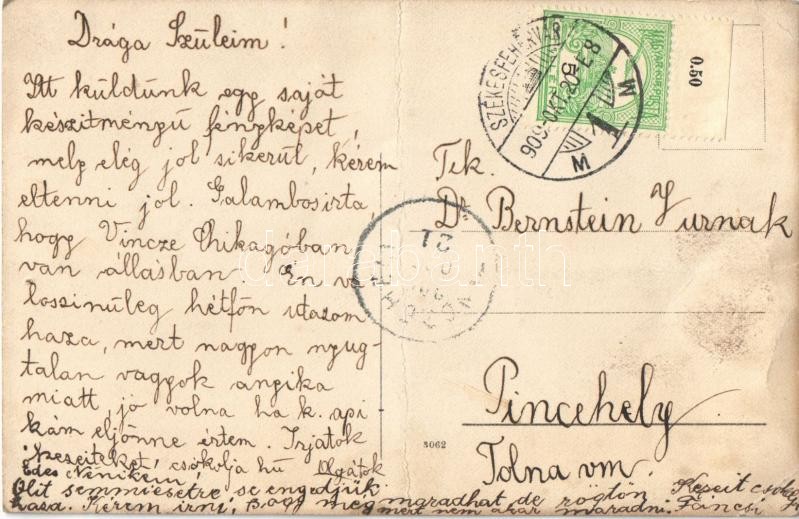 Drága Szüleim!
Itt küldünk egy saját
készitményü fényképet,
mely elég jol sikerül, kérem
eltenni jol. Galambosirta,
hogy Vincze Chikagóban
van állásban. Én va
lossinüleg hétfőn utazom
haza, mert nagyon nyug-
talan vagyok angika
miatt, jó volna ha k. api
kám eljönne értem. Irjatok
kezeiteket, csókolja hű Olgátok
Édes Nénikém!
Olit semmiesetre se engedjük
haza. Kérem irni, hogy még maradhat de rögtön
mert nem akar maradni. Kezeit
SZÉKESFEHÉRVÁR
909 OKT. 20
M 1 M
0.50
Tek.
Dr Bernstein Urnak
21
Pincehely
Tolna vm.
3062
darabanth